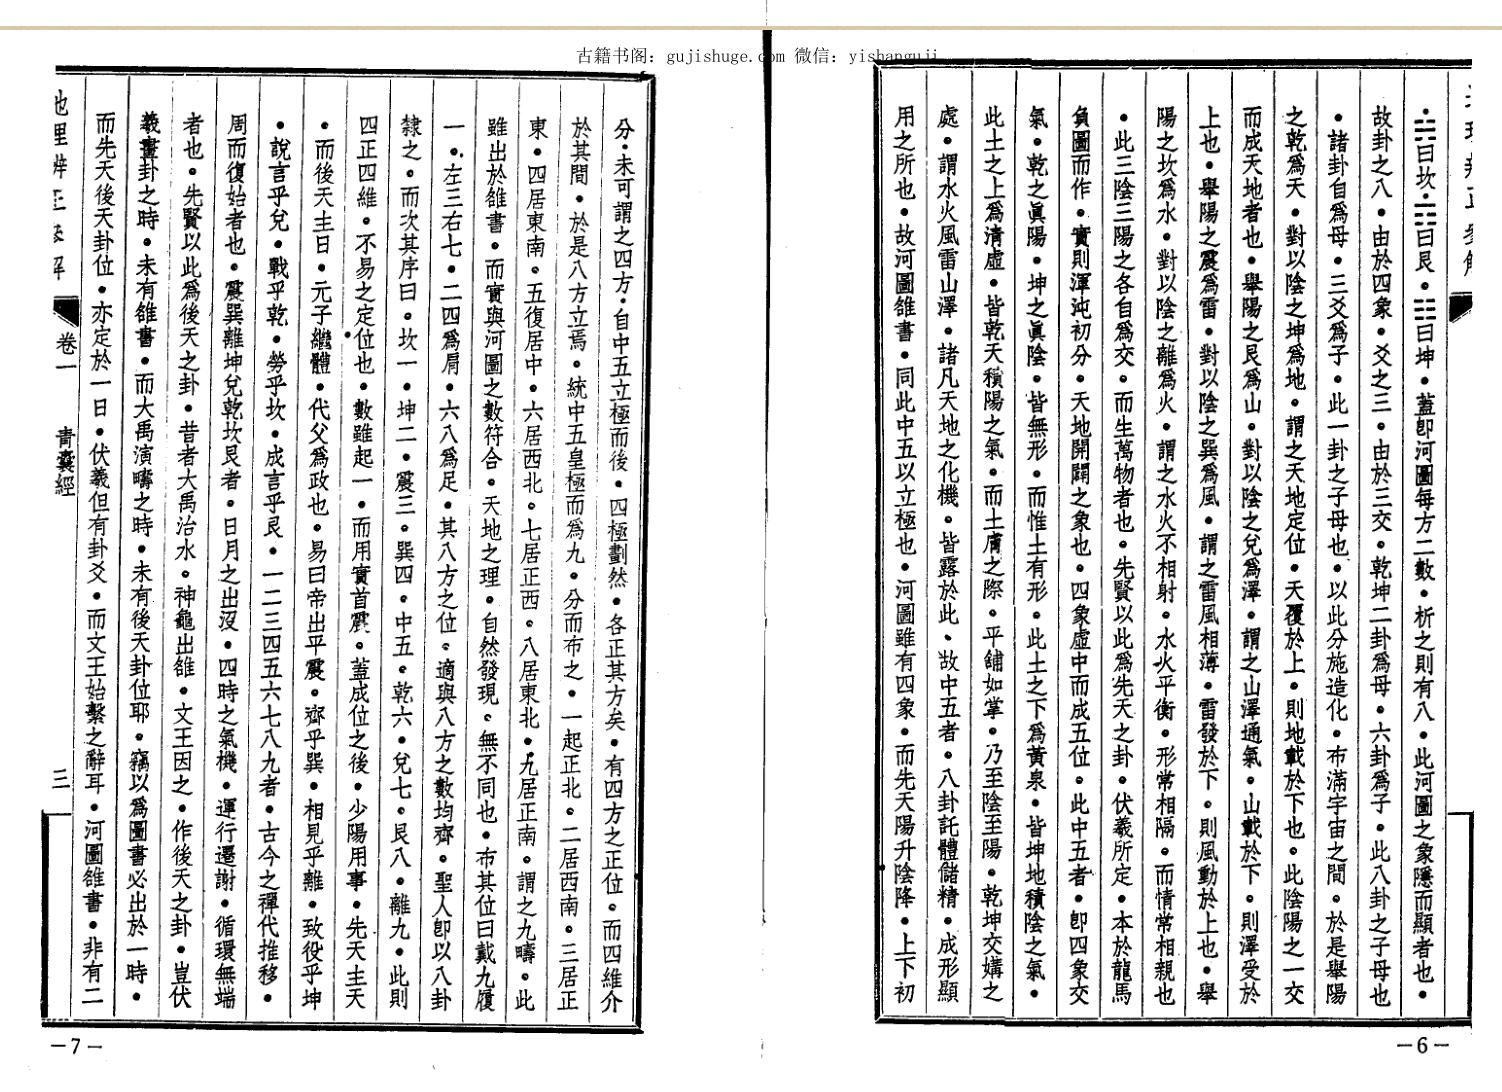 古籍书阁：gujishuge.com 微信：yishanguji
☵曰坎·☶曰艮·☷曰坤·蓋卽河圖每方二數·析之則有八·此河圖之象隱而顯者也·
故卦之八·由於四象·爻之三·由於三交·乾坤二卦爲母·六卦爲子·此八卦之子母也
·諸卦自爲母·三爻爲子·此一卦之子母也·以此分施造化·布滿宇宙之間·於是舉陽
之乾爲天·對以陰之坤爲地·謂之天地定位·天覆於上·則地載於下也·此陰陽之一交
而成天地者也·舉陽之艮爲山·對以陰之兌爲澤·謂之山澤通氣·山載於下·則澤受於
上也·舉陽之震爲雷·對以陰之巽爲風·謂之雷風相薄·雷發於下·則風動於上也·舉
陽之坎爲水·對以陰之離爲火·謂之水火不相射·水火平衡·形常相隔·而情常相親也
·此三陰三陽之各自爲交·而生萬物者也·先賢以此爲先天之卦·伏羲所定·本於龍馬
負圖而作·實則渾沌初分·天地開闢之象也·四象虛中而成五位·此中五者·卽四象交
氣·乾之眞陽·坤之眞陰·皆無形·而惟土有形·此土之下爲黃泉·皆坤地積陰之氣·
此土之上爲清虛·皆乾天積陽之氣·而土膚之際·平鋪如掌·乃至陰至陽·乾坤交媾之
處·謂水火風雷山澤·諸凡天地之化機·皆露於此、故中五者·八卦託體儲精·成形顯
用之所也·故河圖雒書·同此中五以立極也·河圖雖有四象·而先天陽升陰降·上下初
—6—
分·未可謂之四方·自中五立極而後·四極劃然·各正其方矣·有四方之正位·而四維介
於其間·於是八方立焉·統中五皇極而爲九·分而布之·一起正北·二居西南·三居正
東·四居東南·五復居中·六居西北·七居正西·八居東北·九居正南·謂之九疇·此
雖出於雒書·而實與河圖之數符合·天地之理·自然發現·無不同也·布其位曰戴九履
一·左三右七·二四爲肩·六八爲足·其八方之位·適與八方之數均齊·聖人卽以八卦
隸之·而次其序曰·坎一·坤二·震三·巽四·中五·乾六·兌七·艮八·離九·此則
四正四維·不易之定位也·數雖起一·而用實首震·蓋成位之後·少陽用事·先天主天
·而後天主日·元子繼體·代父爲政也·易曰帝出乎震·齊乎巽·相見乎離·致役乎坤
·說言乎兌·戰乎乾·勞乎坎·成言乎艮·一二三四五六七八九者·古今之禪代推移·
周而復始者也·震巽離坤兌乾坎艮者·日月之出沒·四時之氣機·運行遷謝·循環無端
者也·先賢以此爲後天之卦·昔者大禹治水·神龜出雒·文王因之·作後天之卦·豈伏
羲畫卦之時·未有雒書·而大禹演疇之時·未有後天卦位耶·竊以爲圖書必出於一時·
而先天後天卦位·亦定於一日·伏羲但有卦爻·而文王始繫之辭耳·河圖雒書·非有二
地理辨正疏解 卷一 青囊經 三
—7—